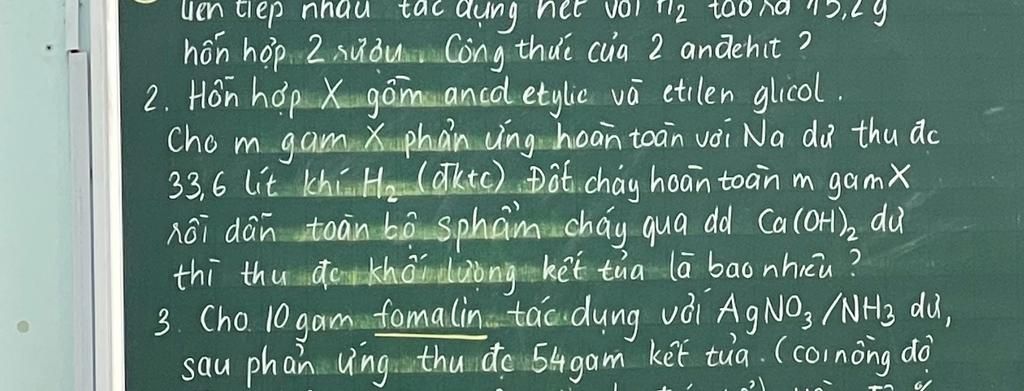 liên tiếp nhau tác dụng hết với H₂ tạo ra 15,2g
hỗn hợp 2 rượu. Công thức của 2 anđehit ?
2. Hỗn hợp X gồm ancol etylic và etilen glicol.
Cho m gam X phản ứng hoàn toàn với Na dư thu đc
33,6 lít khí H₂ (đktc). Đốt cháy hoàn toàn m gam X
rồi dẫn toàn bộ sphẩm cháy qua dd Ca(OH)₂ dư
thì thu đc khối lượng kết tủa là bao nhiêu ?
3. Cho 10 gam fomalin tác dụng với AgNO₃/NH₃ dư,
sau phản ứng thu đc 54 gam kết tủa. (coi nồng độ